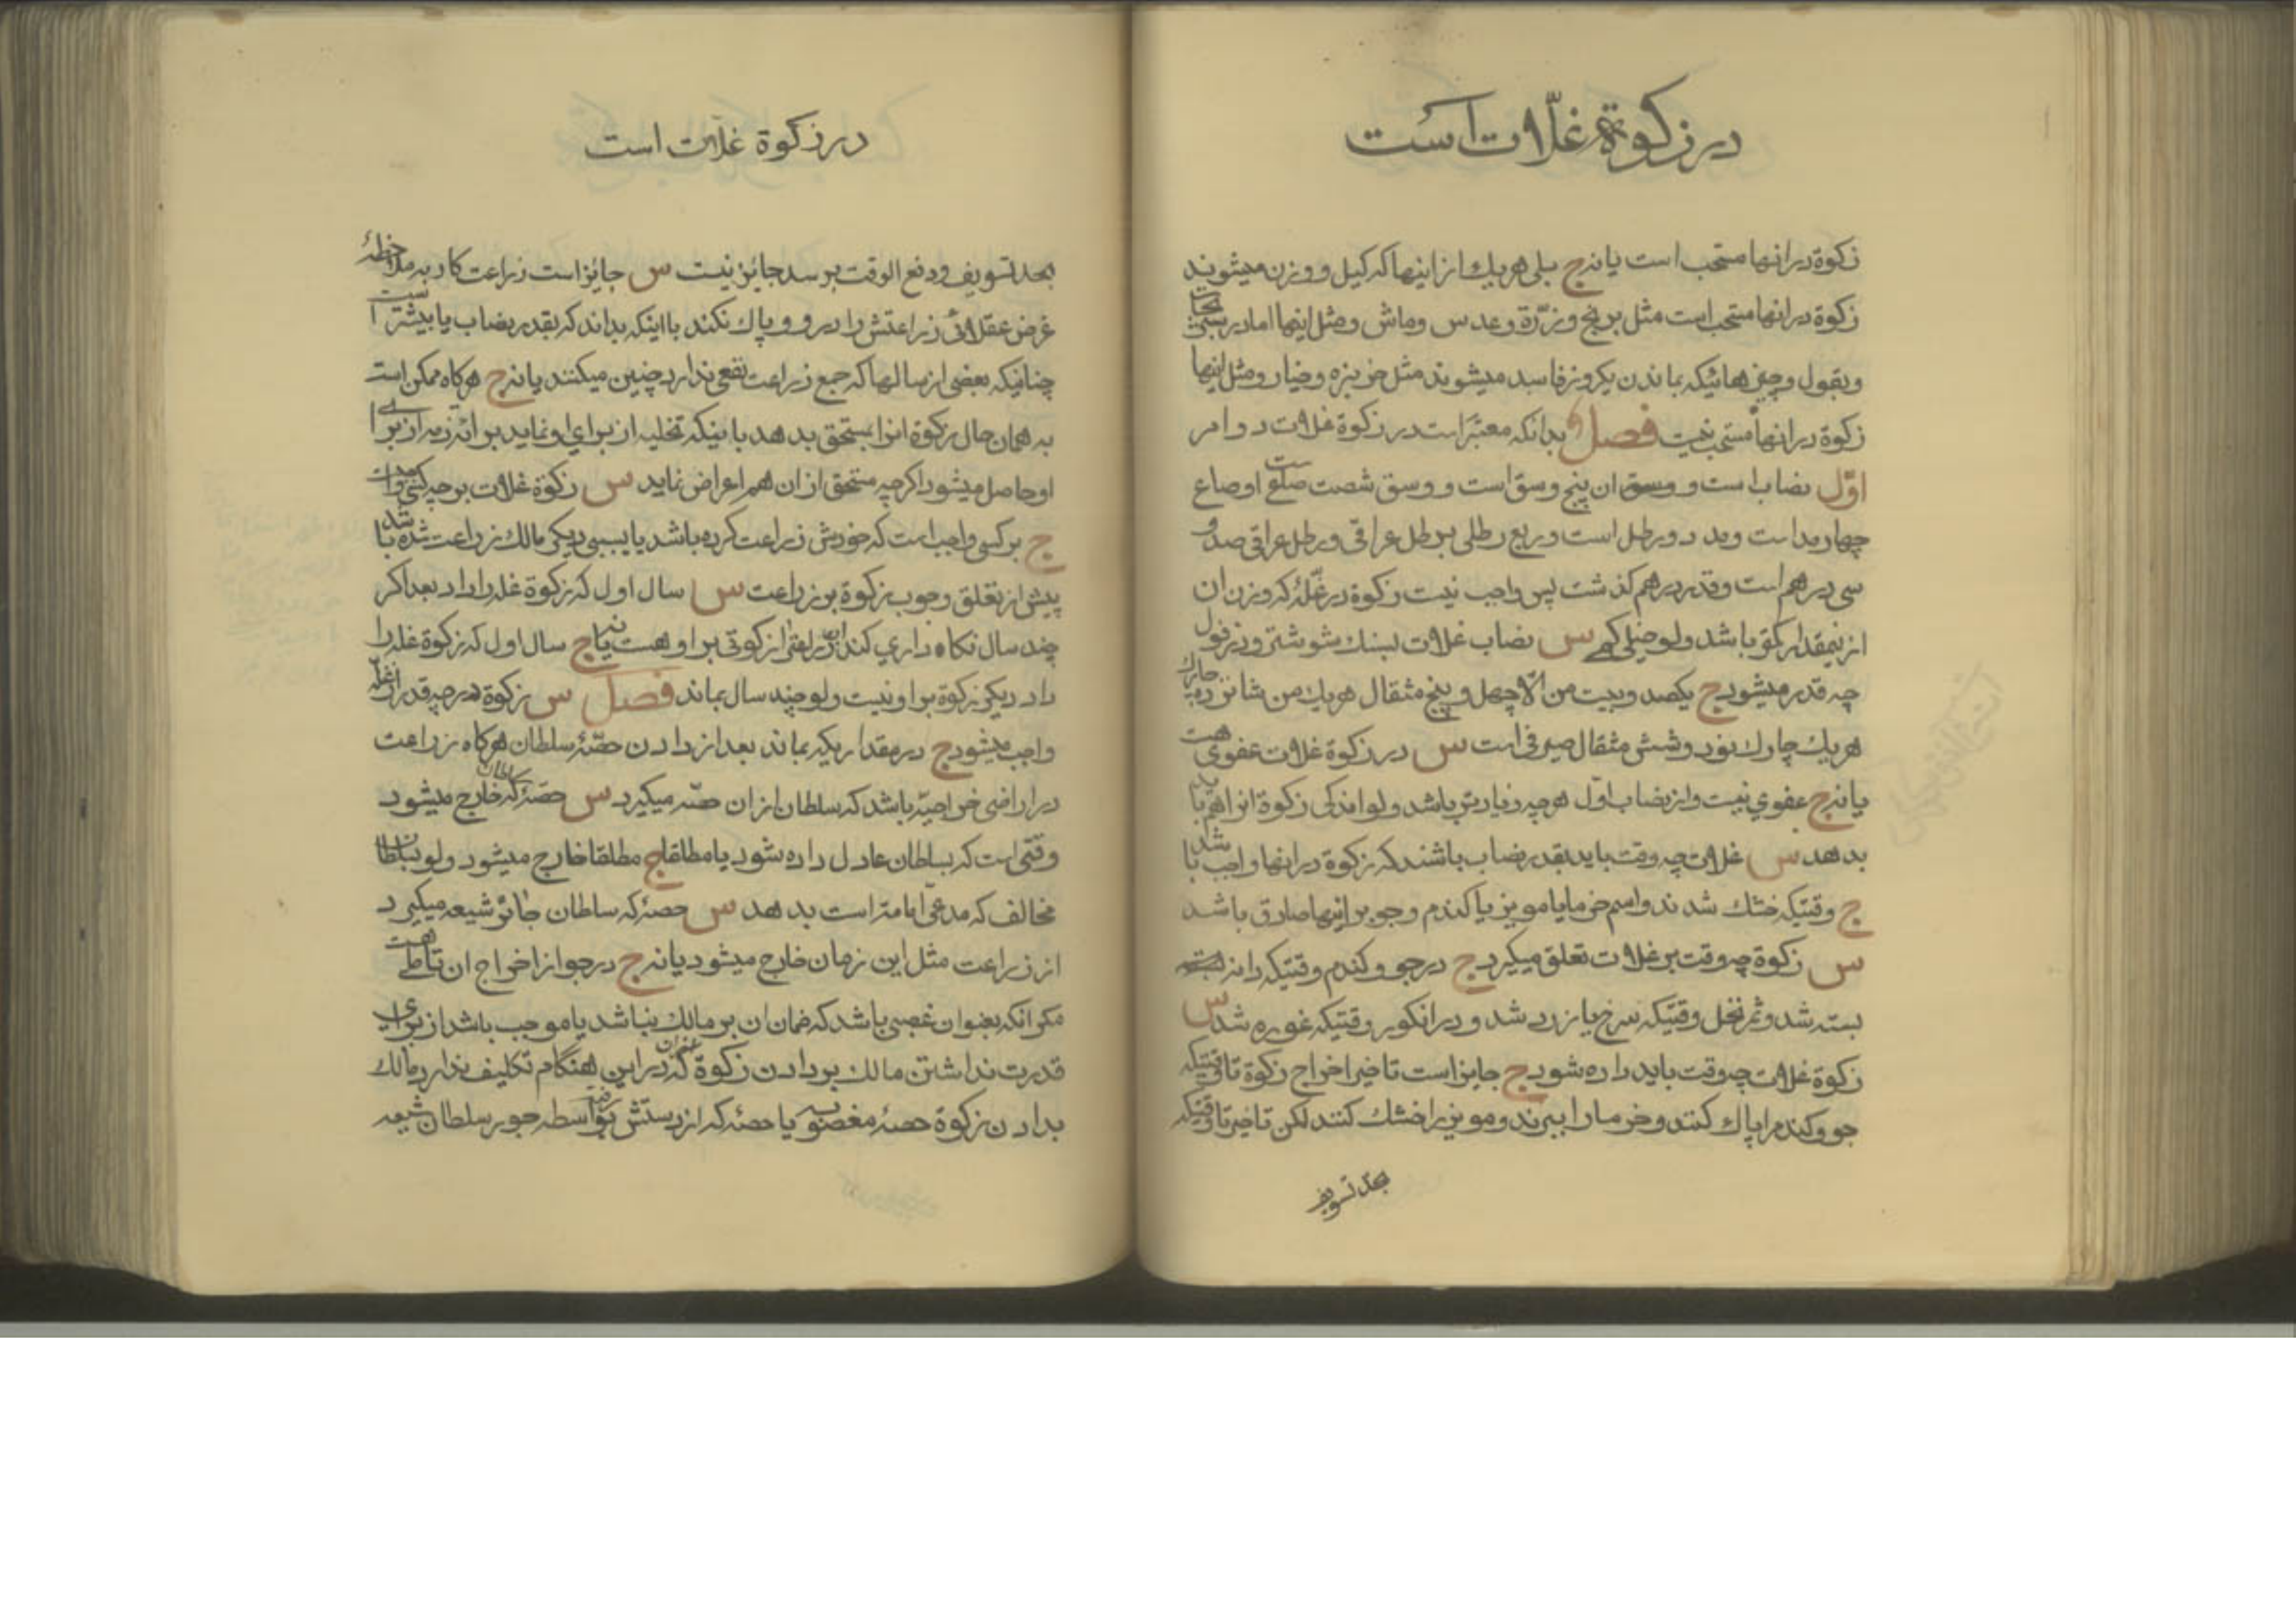 در زکوة غلّات است
زکوة در انها مستحب است یا نه ج بلی هر یك از اینها که کیل و وزن میشوند
زکوة در انها مستحب است مثل برنج و ذرّة و عدس و ماش و مثل اینها اما در
و بقول و چیزهائیکه بماندن یکروز فاسد میشوند مثل خربزه و خیار و مثل اینها
زکوة در انها مستحب نیست فصل بدانکه معتبر است در زکوة غلات دو امر
اوّل نصاب است و ان پنج وسق است و وسق شصت صاع است و صاع
چهار مد است و مد دو رطل است و ربع رطلی برطل عراقی و رطل عراقی صد و
سی درهم است و قدر درهم گذشت پس واجب نیست زکوة در غلّهٔ که وزن ان
از نیمقدار کمتر باشد ولو خیلی کمی س نصاب غلات بسنك شوشتر و دزفول
چه قدر میشود ج یکصد و بیست من الّا چهل و پنج مثقال هر یك من شانزده چارك
هر یك چارك نود و شش مثقال صیرفی است س در زکوة غلات عفوی هست
یا نه ج عفوی نیست و از نصاب اوّل هر چه زیادتر باشد ولو اندکی زکوة انرا هم باید
بدهد س غلات چه وقت باید بقدر نصاب باشند که زکوة در انها واجب باشد
ج وقتیکه خشك شدند و اسم خرما یا مویز یا کندم و جو بر اینها صادق باشد
س زکوة چه وقت بر غلات تعلق میگیرد ج در جو و کندم وقتیکه دانه
بسته شد و ثمر نخل وقتیکه سرخ یا زرد شد و در انکور وقتیکه غوره شد س
زکوة غلات چه وقت باید داده شود ج جایز است تاخیر اخراج زکوة تا وقتیکه
جو و کندم را پاك کنند و خرما را ببرند و مویز را خشك کنند لکن تاخیر تا وقتیکه
بحد تسویف
در زکوة غلّات است
بحد تسویف و دفع الوقت برسد جائز نیست س جائز است زراعت کار به ملاحظهٔ
غرض عقلائی زراعتش را درو و پاك نکند با اینکه بداند که بقدر نصاب یا بیشتر است
چنانیکه بعضی از سالها که جمع زراعت نفعی ندارد چنین میکنند یا نه ج هرکاه ممکن است
به همان حال زکوة انرا بمستحق بدهد باینکه تخلیه ان برای او نماید برائة ذمه از برای
او حاصل میشود اکرچه مستحق از ان هم اعراض نماید س زکوة غلات بر چه کسی واجب است
ج بر کسی واجب است که خودش زراعت کرده باشد یا بسببی دیکر مالك زراعت شده باشد
پیش از تعلق وجوب زکوة بر زراعت س سال اول که زکوة غله را داد بعد اکر
چند سال نکاه داری کند زکوتی بر او هست یا نه ج سال اول که زکوة غله را
داد دیکر زکوة بر او نیست ولو چند سال بماند فصل س زکوة در چه قدر از غلّه
واجب میشود ج در مقداریکه بماند بعد از دادن حصّهٔ سلطان هرکاه زراعت
در اراضی خراجیّه باشد که سلطان از ان حصّه میکیرد س حصّهٔ سلطان که خارج میشود
وقتی است که بسلطان عادل داده شود یا مطلقا ج مطلقا خارج میشود ولو بسلطان
مخالف که مدعی امامت است بدهد س حصهٔ که سلطان جائر شیعه میکیرد
از زراعت مثل این زمان خارج میشود یا نه ج در جواز اخراج ان تاملی هست
مکر انکه بعنوان غصبی باشد که ضمان ان بر مالك نباشد یا موجب باشد از برای
قدرت نداشتن مالك بر دادن زکوة که در این هنکام تکلیف ندارد مالك
بدادن زکوة حصهٔ مغصوبه یا حصهٔ که از دستش رفته بواسطه جور سلطان شیعه